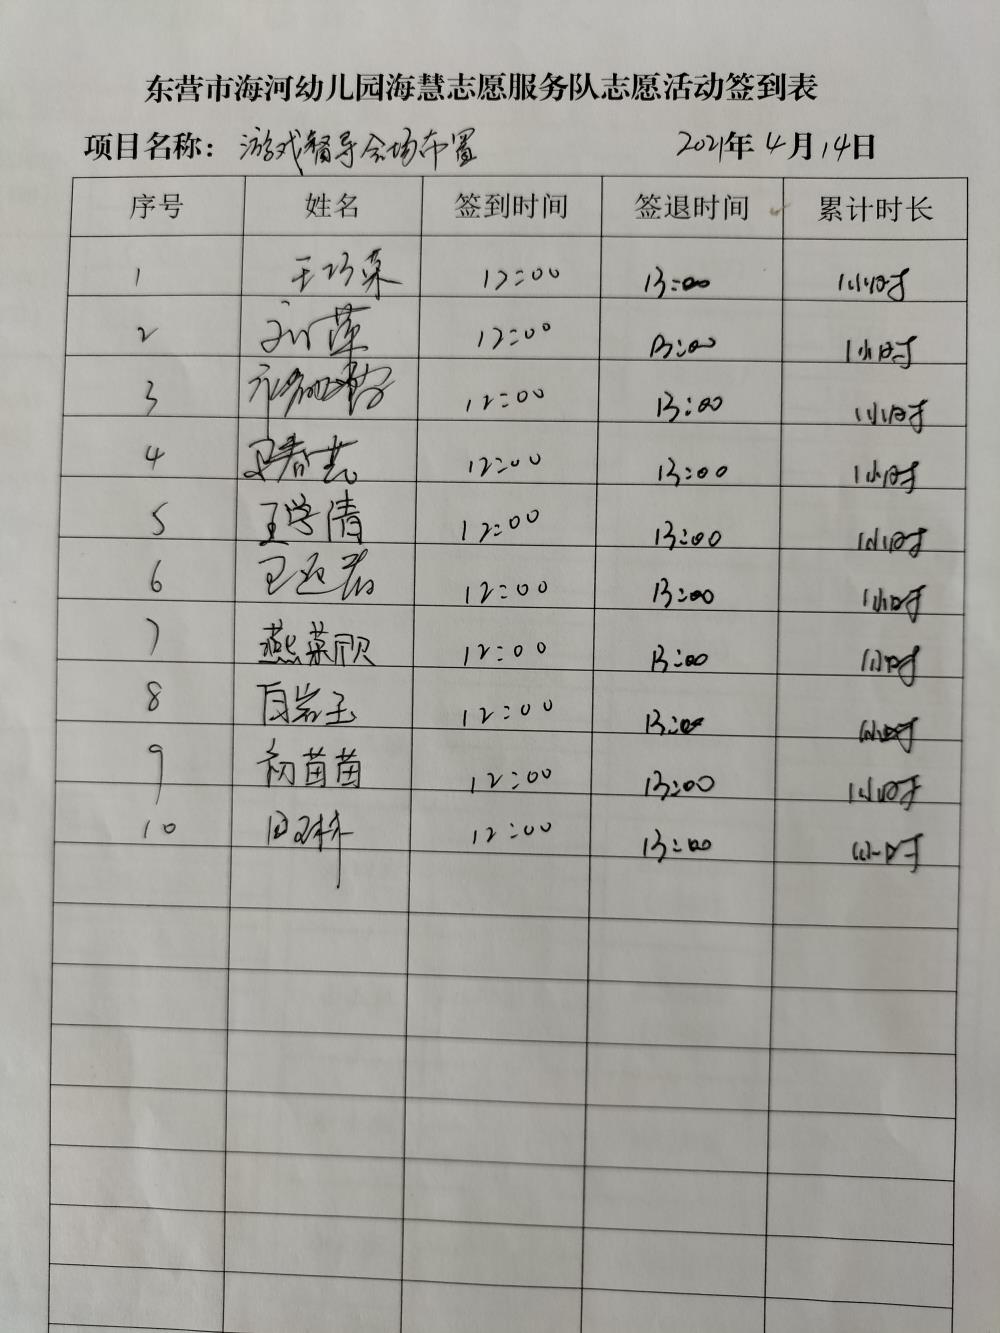 东营市海河幼儿园海慧志愿服务队志愿活动签到表
项目名称：游戏督导会场布置 2021年4月14日
序号 姓名 签到时间 签退时间 累计时长
1 王巧菜 12:00 13:00 1小时
2 刘萍 12:00 13:00 1小时
3 12:00 13:00 1小时
4 12:00 13:00 1小时
5 王学清 12:00 13:00 1小时
6 12:00 13:00 1小时
7 燕菜欣 12:00 13:00 1小时
8 白岩玉 12:00 13:00 1小时
9 初苗苗 12:00 13:00 1小时
10 12:00 13:00 1小时